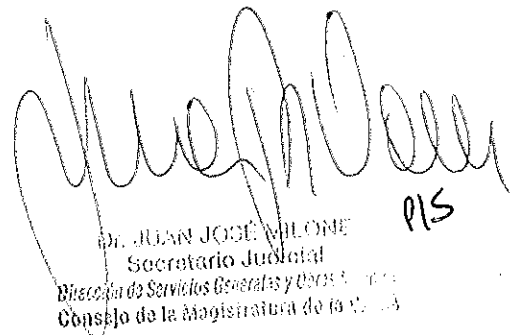 P/S
Dr. JUAN JOSÉ MILONE
Secretario Judicial
Dirección de Servicios Generales y Obras
Consejo de la Magistratura de la